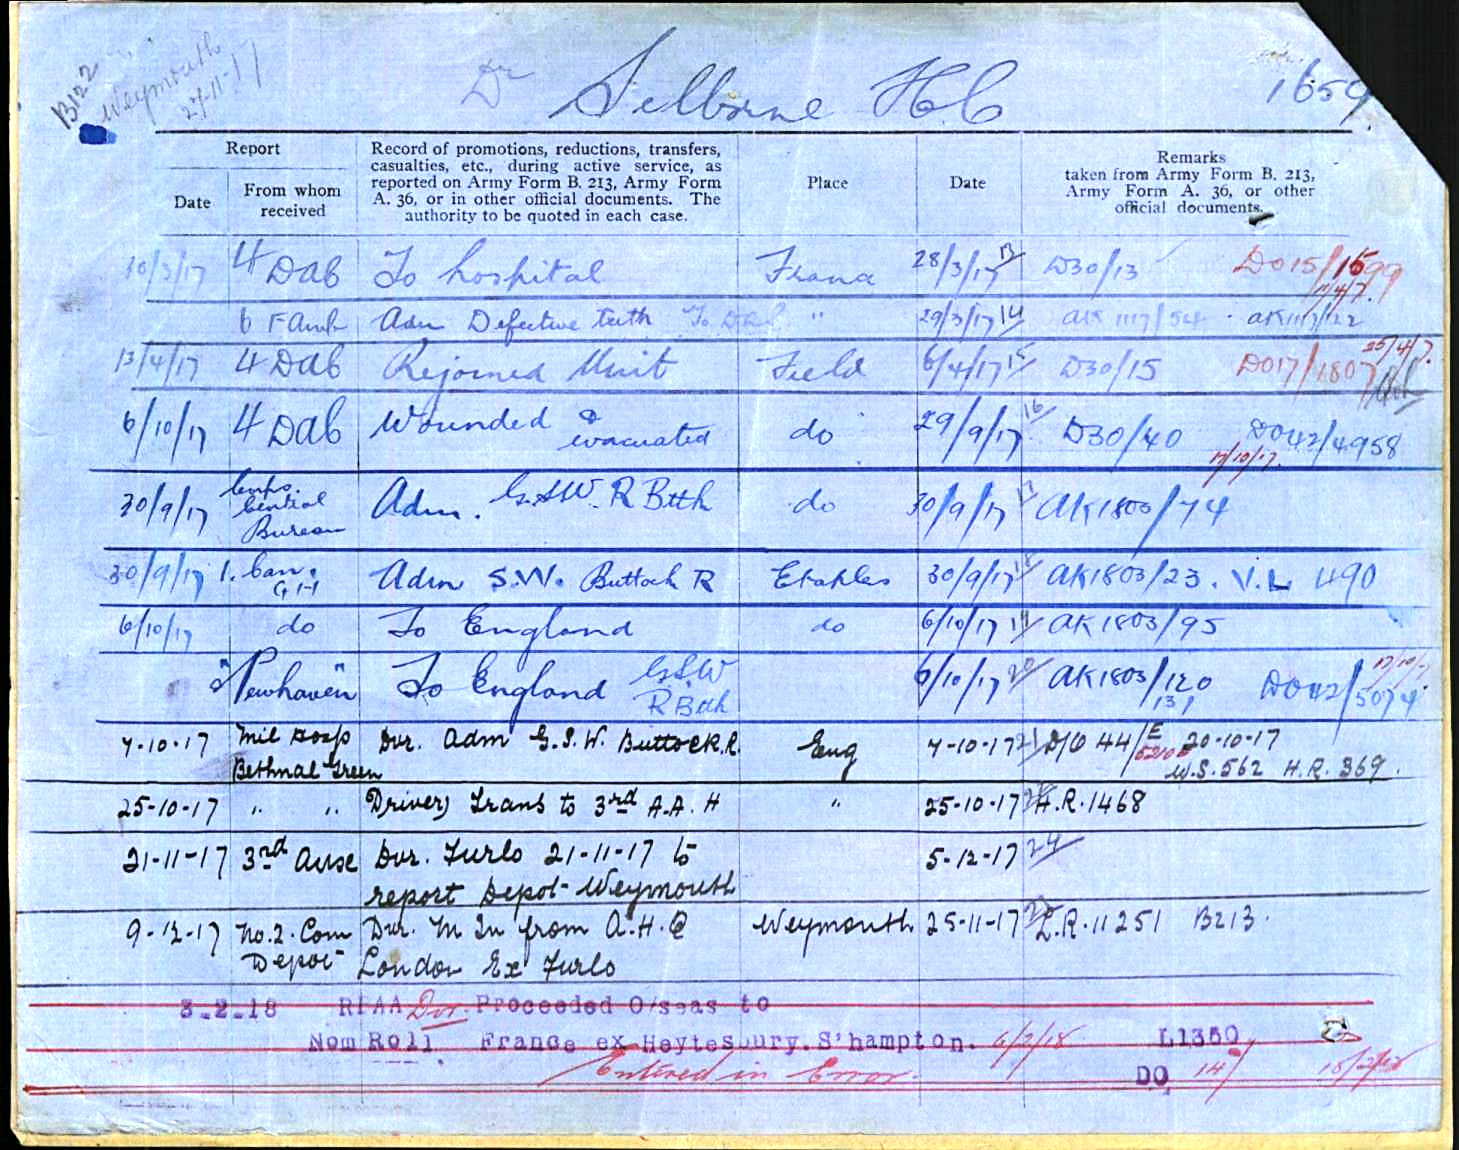 B122
Weymouth
27-11-17
Dr Selborne H C
1659
Report
Date
From whom
received
Record of promotions, reductions, transfers,
casualties, etc., during active service, as
reported on Army Form B. 213, Army Form
A. 36, or in other official documents. The
authority to be quoted in each case.
Place
Date
Remarks
taken from Army Form B. 213,
Army Form A. 36, or other
official documents.
10/3/17 4 DAC To hospital France 28/3/17 13 D30/13 DO15/1599
17/4/7.
6 F Amb Adm Defective teeth To " 29/3/17 14 AK1117/54 AK1117/22
13/4/17 4 DAC Rejoined Unit Field 6/4/17 15 D30/15 DO17/1807 25/4/7.
6/10/17 4 DAC Wounded & evacuated do 29/9/17 16 D30/40 DO42/4958
17/10/17.
30/9/17 Corps Central Bureau Adm. G.S.W. R Bttk do 30/9/17 17 AK1803/74
30/9/17 1. Can. G H Adm S.W. Buttock R Etaples 30/9/17 18 AK1803/23. V.L 490
6/10/17 do To England do 6/10/17 19 AK1803/95
"Newhaven" To England G.S.W R Bttk 6/10/17 20 AK1803/120 DO42/5074 17/10/17
131
7-10-17 Mil Hosp Bethnal Green Dvr. Adm G.S.W. Buttock R. Eng 7-10-17 21 D/O 44/E 20-10-17
W.S.562 H.R. 369.
25-10-17 " " (Driver) Trans to 3rd A.A.H " 25-10-17 H.R.1468
21-11-17 3rd Ause Dvr. Furlo 21-11-17 to 5-12-17 24
report Depot Weymouth
9-12-17 No.2. Com Depot Dvr. M In from A.H.Q Weymouth 25-11-17 L.R.11251 B213.
London Ex Furlo
3-2-18 RFAA Dvr. Proceeded O/seas to
Nom Roll France ex Heytesbury. S'hampton. 6/2/18 L1350
Entered in Error. DO 14/